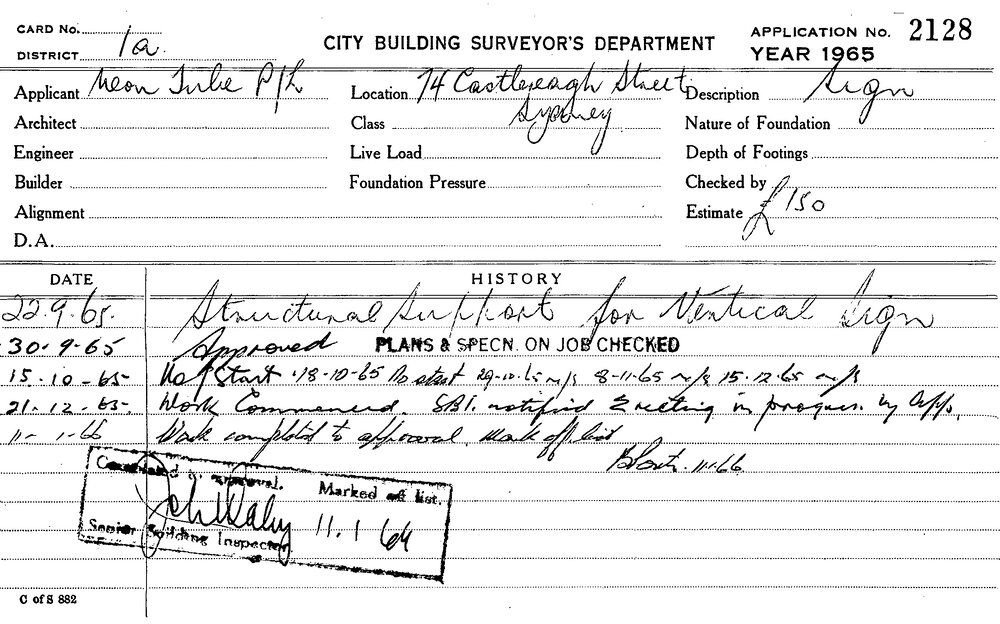 CARD No.
DISTRICT 1a.
CITY BUILDING SURVEYOR'S DEPARTMENT
APPLICATION No. 2128
YEAR 1965
Applicant Neon Tube P/L
Location 74 Castlereagh Street
Sydney
Description Sign
Architect
Class
Nature of Foundation
Engineer
Live Load
Depth of Footings
Builder
Foundation Pressure
Checked by
Alignment
Estimate £150
D.A.
DATE HISTORY
22.9.65. Structural Support for Vertical Sign
30.9-65 Approved PLANS & SPECN. ON JOB CHECKED
15.10-65- No Start 18-10-65 No start 29-10.65 n/s 8-11-65 n/s 15.12.65 n/s
21.12.65. Work Commenced. S.B.I. notified Erecting in progress.
11-1-66 Work completed to approval. Mark off list
11.1.66
Completed to approval. Marked off list.
11.1 66
Senior Building Inspector.
C of S 882